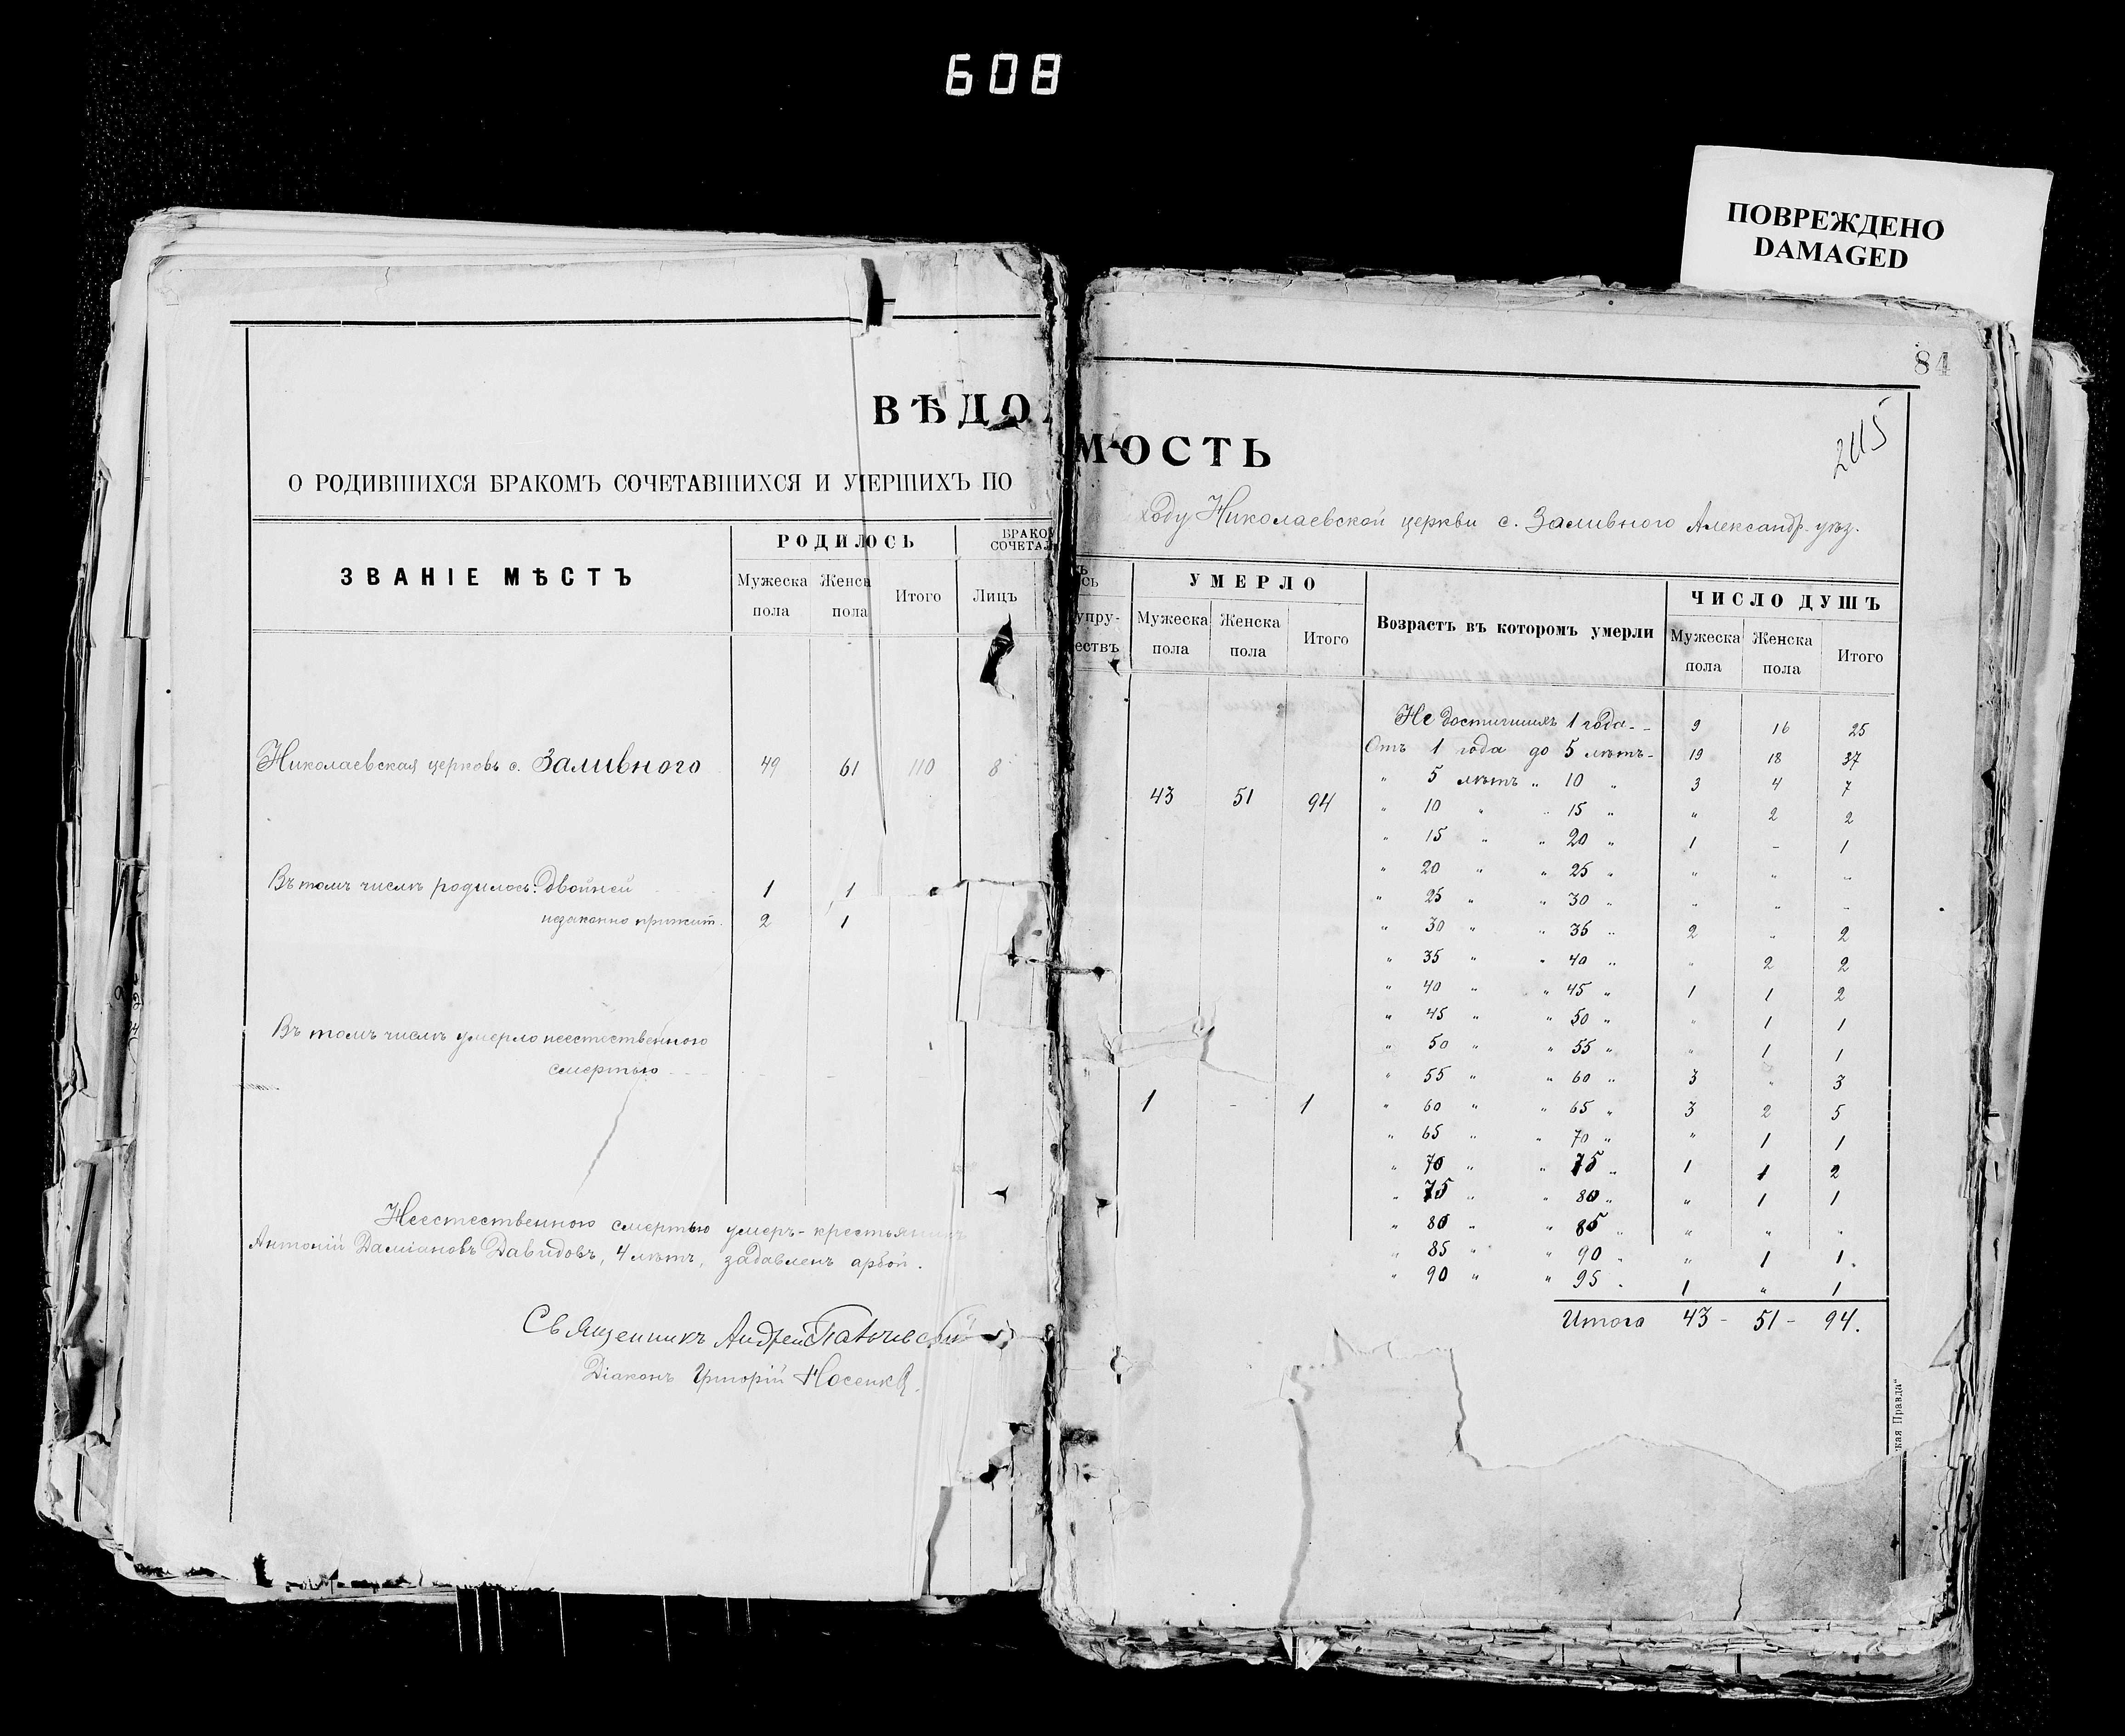 608
ПОВРЕЖДЕНО
DAMAGED
84
ВѢДОМОСТЬ
О РОДИВШИХСЯ БРАКОМЪ СОЧЕТАВШИХСЯ И УМЕРШИХЪ ПО
ходу Николаевской церкви с. Заливного Александр. уѣз.
ЗВАНІЕ МѢСТЪ
РОДИЛОСЬ
Мужеска пола
Женска пола
Итого
БРАКОМЪ СОЧЕТАЛОСЬ
Лицъ
Николаевская церковь с. Заливного 49 61 110 8
Въ томъ числѣ родилось: двойней 1 1
незаконно прижит. 2 1
Въ томъ числѣ умерло неестественною
смертью
Неестественною смертью умеръ - крестьянинъ
Антоній Даміановъ Давидовъ, 4 лѣтъ, задавленъ арбой.
Священникъ Андрей
Діаконъ Григорій Носенко.
УМЕРЛО
Мужеска пола
Женска пола
Итого
43 51 94
1 - 1
Возрастъ въ которомъ умерли
ЧИСЛО ДУШЪ
Мужеска пола
Женска пола
Итого
Не достигшихъ 1 года - - 9 16 25
Отъ 1 года до 5 лѣтъ - 19 18 37
" 5 лѣтъ " 10 " 3 4 7
" 10 " " 15 " " 2 2
" 15 " " 20 " 1 - 1
" 20 " " 25 " " " "
" 25 " " 30 " " " "
" 30 " " 35 " 2 " 2
" 35 " " 40 " " 2 2
" 40 " " 45 " 1 1 2
" 45 " " 50 " " 1 1
" 50 " " 55 " " 1 1
" 55 " " 60 " 3 " 3
" 60 " " 65 " 3 2 5
" 65 " " 70 " " 1 1
" 70 " " 75 " 1 1 2
" 75 " " 80 " " 1 1
" 80 " " 85 " " " "
" 85 " " 90 " " 1 1.
" 90 " " 95 " 1 " 1
Итого 43 - 51 - 94.
кая Правда"